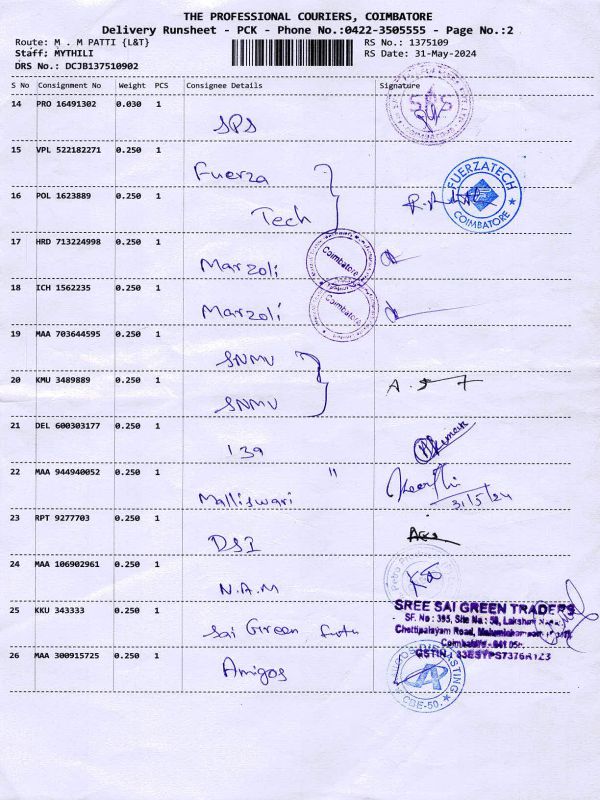 THE PROFESSIONAL COURIERS, COIMBATORE
Delivery Runsheet - PCK - Phone No.:0422-3505555 - Page No.:2
Route: M . M PATTI {L&T} RS No.: 1375109
Staff: MYTHILI RS Date: 31-May-2024
DRS No.: DCJB137510902
S No Consignment No Weight PCS Consignee Details Signature
14 PRO 16491302 0.030 1
SPS
15 VPL 522182271 0.250 1
Fuerza
FUERZATECH
COIMBATORE
16 POL 1623889 0.250 1
Tech
17 HRD 713224998 0.250 1
Marzoli
Coimbatore
18 ICH 1562235 0.250 1
Marzoli
Coimbatore
19 MAA 703644595 0.250 1
SNMV
20 KMU 3489889 0.250 1
SNMV
21 DEL 600303177 0.250 1
139
22 MAA 944940052 0.250 1 "
Malliswari
31/5/24
23 RPT 9277703 0.250 1
DSI
24 MAA 106902961 0.250 1
N.A.M
25 KKU 343333 0.250 1
Sai Green
SREE SAI GREEN TRADERS
SF. No : 395, Site No : 58, Lakshmi
Chettipalayam Road,
Coimbatore - 641
26 MAA 300915725 0.250 1
Amigos
CBE-50.